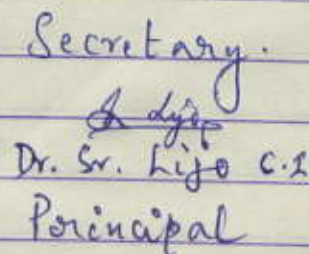 Secretary.
Dr. Sr. Lijo C.I
Principal